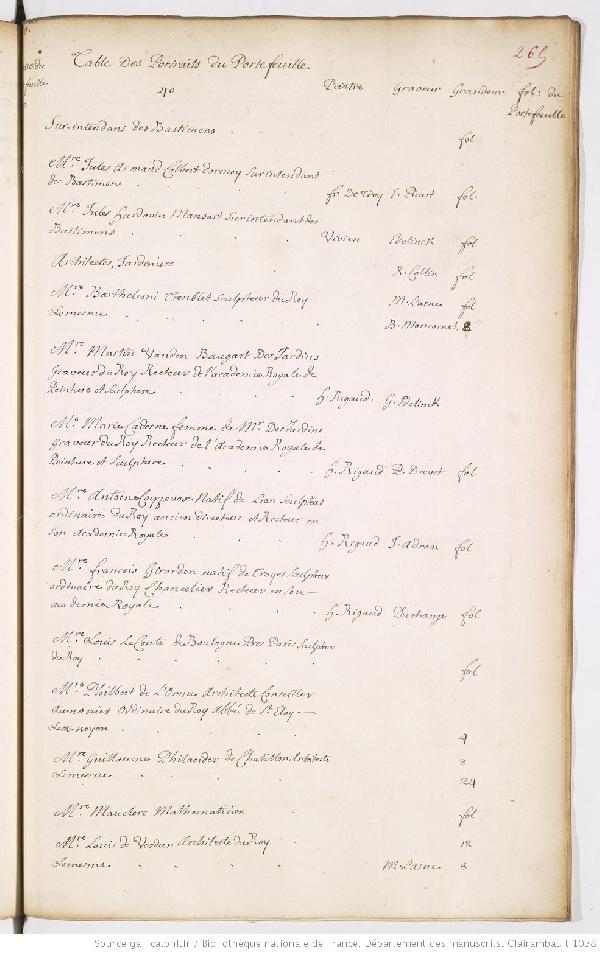 265
Table Des Portraits du Portefeuille
40
Peintre Graveur Grandeur fol: du
Portefeuille
Sur-intendans des Bastimens
fol
Mre Jules Armand Colbert dormoy Surintendant
des Bastimens fr De Troy E. Picart fol.
Mre Jules hardouin Mansart Surintendant des
Bastimens Vivien Edelinck fol
Architectes, Jardiniers R. Collin fol
Mre Barthelemi Tremblet Sculpteur du Roy M. Lasne fol
Lemesme B. Moncornet 8
Mre Martin Vanden Baugart Des Jardins
Graveur du Roy Recteur de l'academie Royale de
Peinture et Sculpture h. Rigaud G. Edelinck
Me Marie Cadesne femme de Mr Des Jardins
graveur du Roy Recteur de l'Academie Royale de
Peinture et Sculpture h. Rigaud P. Drevet fol
Mre Antoine Coyzevox Natif de Lion Sculpteur
ordinaire du Roy ancien directeur et Recteur en
son Academie Royale h. Rigaud J. Adran fol
Mre francois Girardon natif de Troyes Sculpteur
ordinaire du Roy Chancelier Recteur en son
academie Royale h. Rigaud Duchange fol
Mre Louis Le Conte de Boulogne Pres Paris Sculpteur
du Roy fol
Mre Philbert de L'Orme Architecte Conseiller
aumonier ordinaire du Roy Abbé de St Eloy
Lez-noyon 4
Mre Guillaume Philander de Chatillon Architecte 8
Lemesme 24
Mre Mauclerc Mathematicien fol
Mre Louis de Verdun Architecte du Roy 12
Lemesme M. Lasne 8
Source gallica.bnf.fr / Bibliothèque nationale de France. Département des manuscrits. Clairambault 1038